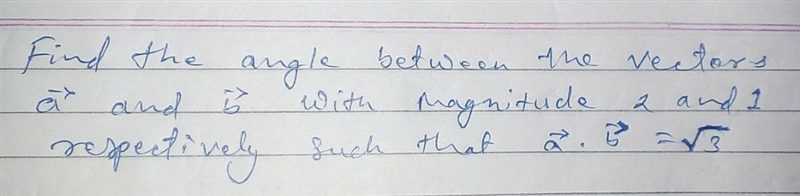 Find the angle between the vectors
a⃗ and b⃗ with Magnitude 2 and 1
respectively such that a⃗ . b⃗ = √3